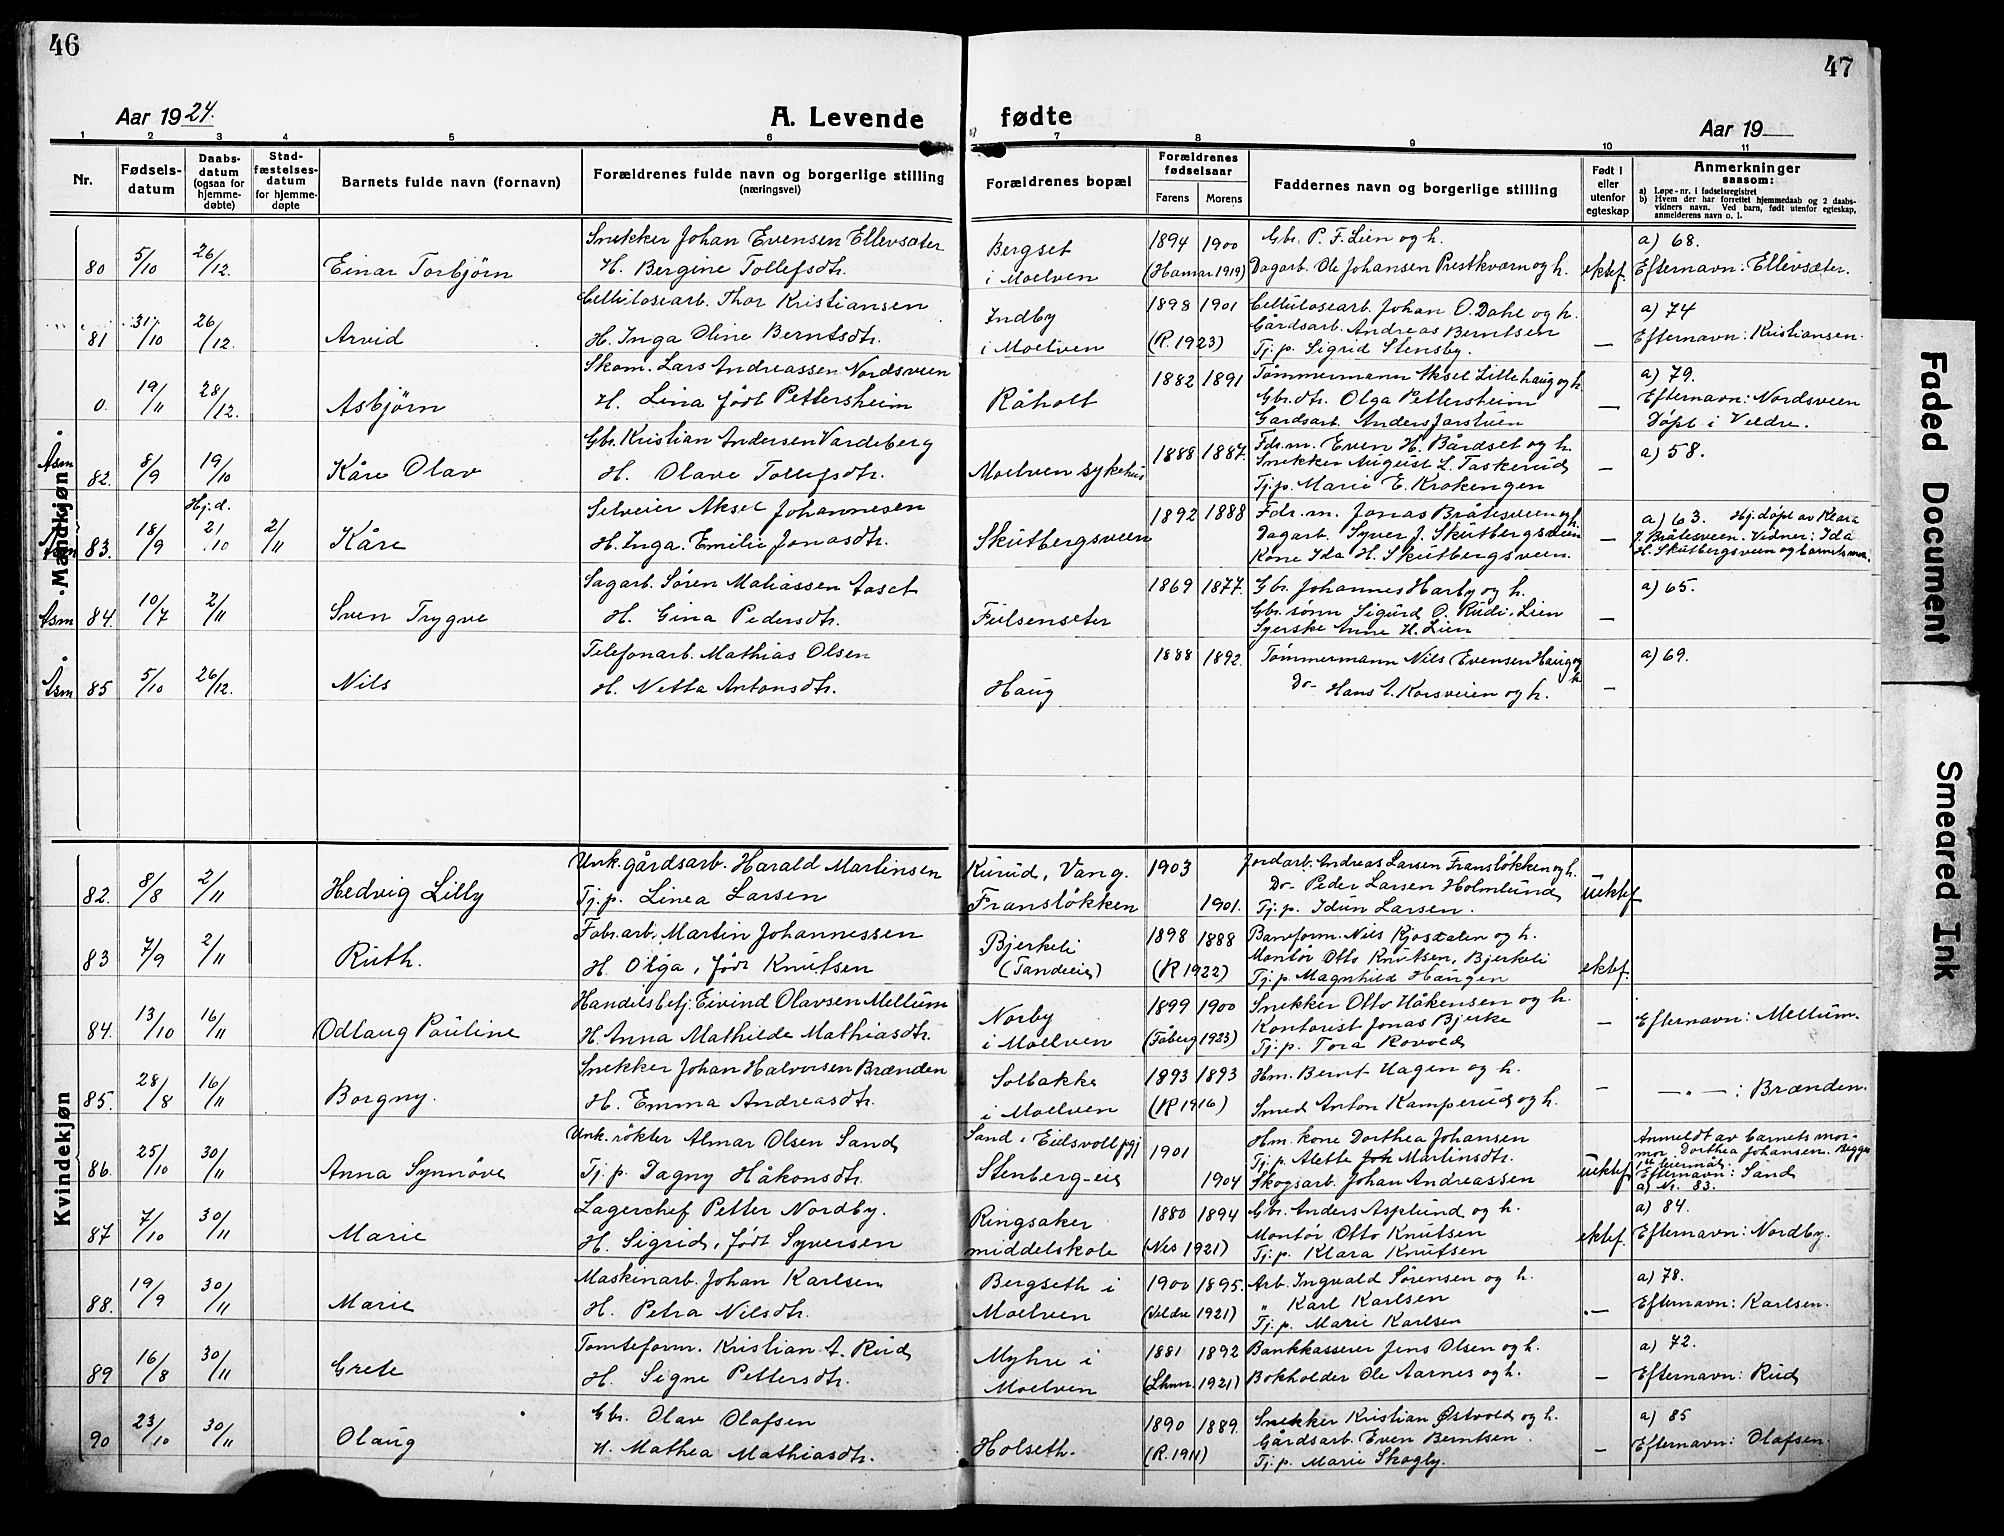 46
47
Aar 1924.
A. Levende
fødte
Aar 19
1 2 3 4 5 6 7 8 9 10 11
Nr.
Fødselsdatum
Daabsdatum (ogsaa for hjemmedøbte)
Stadfæstelsesdatum for hjemmedøpte
Barnets fulde navn (fornavn)
Forældrenes fulde navn og borgerlige stilling (næringsvei)
Forældrenes bopæl
Forældrenes fødselsaar
Farens Morens
Faddernes navn og borgerlige stilling
Født i eller utenfor egteskap
Anmerkninger saasom:
a) Løpe-nr. i fødselsregistret
b) Hvem der har forrettet hjemmedaab og 2 daabsvidners navn. Ved barn, født utenfor egteskap, anmelderens navn o. l.
Mandkjøn
80 5/10 26/12. Einar Torbjørn
Snekker Johan Evensen Ellevsæter
H. Bergine Tollefsdtr.
Bergset
i Moelven
1894 1900
(Hamar 1919)
Gbr. P. F. Lien og h.
Dagarb. Ole Johansen Prestkværn og h.
ektef.
a) 68.
Efternavn: Ellevsæter.
81 31/10 26/12. Arvid
Cellulosearb. Thor Kristiansen
H. Inga Oline Berntsdtr.
Indby
i Moelven
1898 1901
(R. 1923)
Cellulosearb. Johan O. Dahl og h.
Gårdsarb. Andreas Berntsen
Tj. p. Sigrid Stensby.
—
a) 74
Efternavn: Kristiansen.
0. 19/11 28/12. Asbjørn
Skom. Lars Andreassen Nordsveen
H. Lina født Pettersheim
Råholt
1882 1891
Tømmermann Aksel Lillehaug og h.
Gbr.dtr. Olga Pettersheim
Gardsarb. Anders Jarstuen
—
a) 79.
Efternavn: Nordsveen
Døpt i Veldre.
Åsm 82. 8/9 19/10 Kåre Olav
Gbr. Kristian Andersen Vardeberg
H. Olave Tollefsdtr.
Moelven sykehus
1888 1887.
Fdr.m. Even H. Bårdset og h.
Snekker August L. Taskerud
Tj.p. Marie E. Krokengen
—
a) 58.
Åsm 83. 18/9 Hj.d. 21/10 2/11 Kåre
Selveier Aksel Johannesen
H. Inga Emilie Jonasdtr.
Skutbergsveen
1892 1888
Fdr. m. Jonas Bråtesveen og h.
Dagarb. Syver J. Skutbergsveen
Kone Ida H. Skutbergsveen.
—
a) 63. Hj.døpt av Klara
J. Bråtesveen. Vidner: Ida
H. Skutbergsveen og barnets mor.
Åsm 84. 10/7 2/11 Sven Trygve
Sagarb. Søren Matiassen Aaset
H. Gina Pedersdtr.
Fielsenseter
1869 1877.
Gbr. Johannes Harby og h.
Gbr. sønn Sigurd O. Rudi, Lien
Syerske Anne H. Lien
—
a) 65.
Åsm 85 5/10 26/12. Nils
Telefonarb. Mathias Olsen
H. Netta Antonsdtr.
Haug
1888 1892.
Tømmermann Nils Evensen Haug og h
Do- Hans A. Korsveien og h.
—
a) 69.
Kvindekjøn
82. 8/8 2/11 Hedvig Lilly
Unk. gårdsarb. Harald Martinsen
Tj. p. Linea Larsen
Kurud, Vang.
Fransløkken
1903
1901.
Jordarb. Andreas Larsen Fransløkken og h.
Do- Peder Larsen Holmlund
Tj. p. Idun Larsen.
uektef.
83 7/9 2/11 Ruth.
Fabr.arb. Martin Johannessen
H. Olga, født Knutsen
Bjerkeli
(Tandeeie)
1898 1888
(R 1922)
Baneform. Nils Kjosdalen og h.
Montør Otto Knutsen, Bjerkeli
Tj. p. Magnhild Haugen
ektef.
84. 13/10 16/11 Odlaug Pauline
Handelsbetj. Eivind Olavsen Mellum
H. Anna Mathilde Mathiasdtr.
Norby
i Moelven
1899 1900
(Fåberg 1923)
Snekker Otto Håkensen og h.
Kontorist Jonas Bjerke
Tj. p. Tora Rovold
—
Efternavn: Mellum.
85. 28/8 16/11 Borgny.
Snekker Johan Halvorsen Brænden
H. Emma Andreasdtr.
Solbakke
i Moelven
1893 1893
(R 1916)
Hm. Bernt Hagen og h.
Smed Anton Kamperud og h.
—
—"—: Brænden.
86. 25/10 30/11 Anna Synnøve
Unk. røkter Almar Olsen Sand
Tj. p. Dagny Håkonsdtr.
Sand, Eidsvoll pgj
Stenberg-eie
1901
1904
Hm. kone Dorthea Johansen
Tj. p. Alette Joh Martinsdtr.
Skogsarb. Johan Andreassen
uektef.
Anmeldt av barnets mormor Dorthea Johansen. Begges
1ste leiermål.
Efternavn: Sand
a) Nr. 83.
87 7/10 30/11 Marie
Lagerchef Petter Nordby.
H. Sigrid, født Syversen
Ringsaker
middelskole
1880 1894
(Nes 1921)
Gbr. Anders Asplund og h.
Montør Otto Knutsen
Tj. p. Klara Knutsen
ektef.
a) 84.
Efternavn: Nordby.
88. 19/9 30/11 Marie
Maskinarb. Johan Karlsen
H. Petra Nilsdtr.
Bergseth i
Moelven
1900 1895.
(Veldre 1921)
Arb. Ingvald Sørensen og h.
" Karl Karlsen
Tj. p. Marie Karlsen
—
a) 78.
Efternavn: Karlsen.
89 16/8 30/11 Grete
Tomteform. Kristian A. Rud
H. Signe Pettersdtr.
Myhre i
Moelven
1881 1892
(Lhmr. 1921)
Bankkasserer Jens Olsen og h.
Bokholder Ole Aarnes og h.
—
a) 72.
Efternavn: Rud
90 23/10 30/11 Olaug
Gbr. Olav Olafsen
H. Mathea Mathiasdtr.
Holseth.
1890 1889.
(R. 1911)
Snekker Kristian Østvold og h.
Gårdsarb. Even Berntsen.
Tj. p. Marie Skogly.
—
a) 85
Efternavn: Olafsen.
Faded Document
Smeared Ink